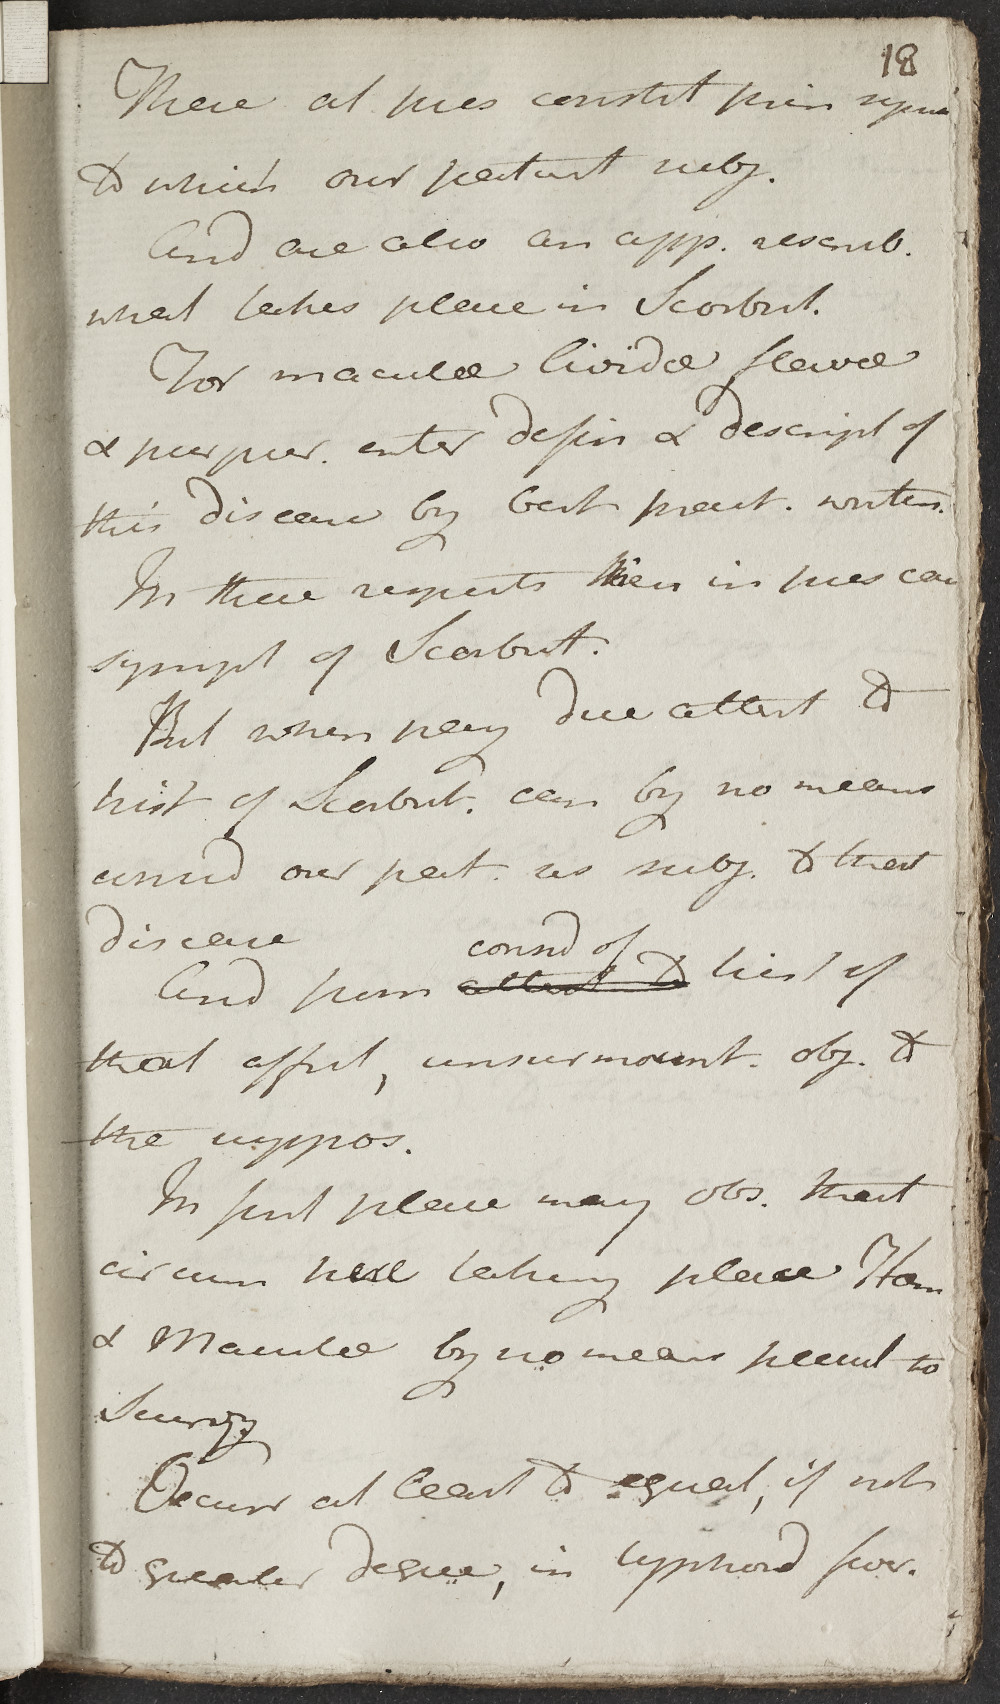 18
These at pres constit prin symp
to which our patient subj.
And are also an app. resemb.
what takes place in Scorbut.
For maculæ lividæ flavæ
& purpur. enter defin & descript of
this disease by best pract. writers.
In these respects then in pres case
sympt of Scorbut.
But when pay due attent to
hist of Scorbut. can by no means
consid our pat. as subj. to that
disease
consd of
And from attent to hist of
that affect, unsurmount. obj. to
the suppos.
In first place may obs. that
circum here taking place Hem
& Maculæ by no means pecul to
Scurvy
Occurr at least to equal, if not
to greater degree, in typhoid fever.